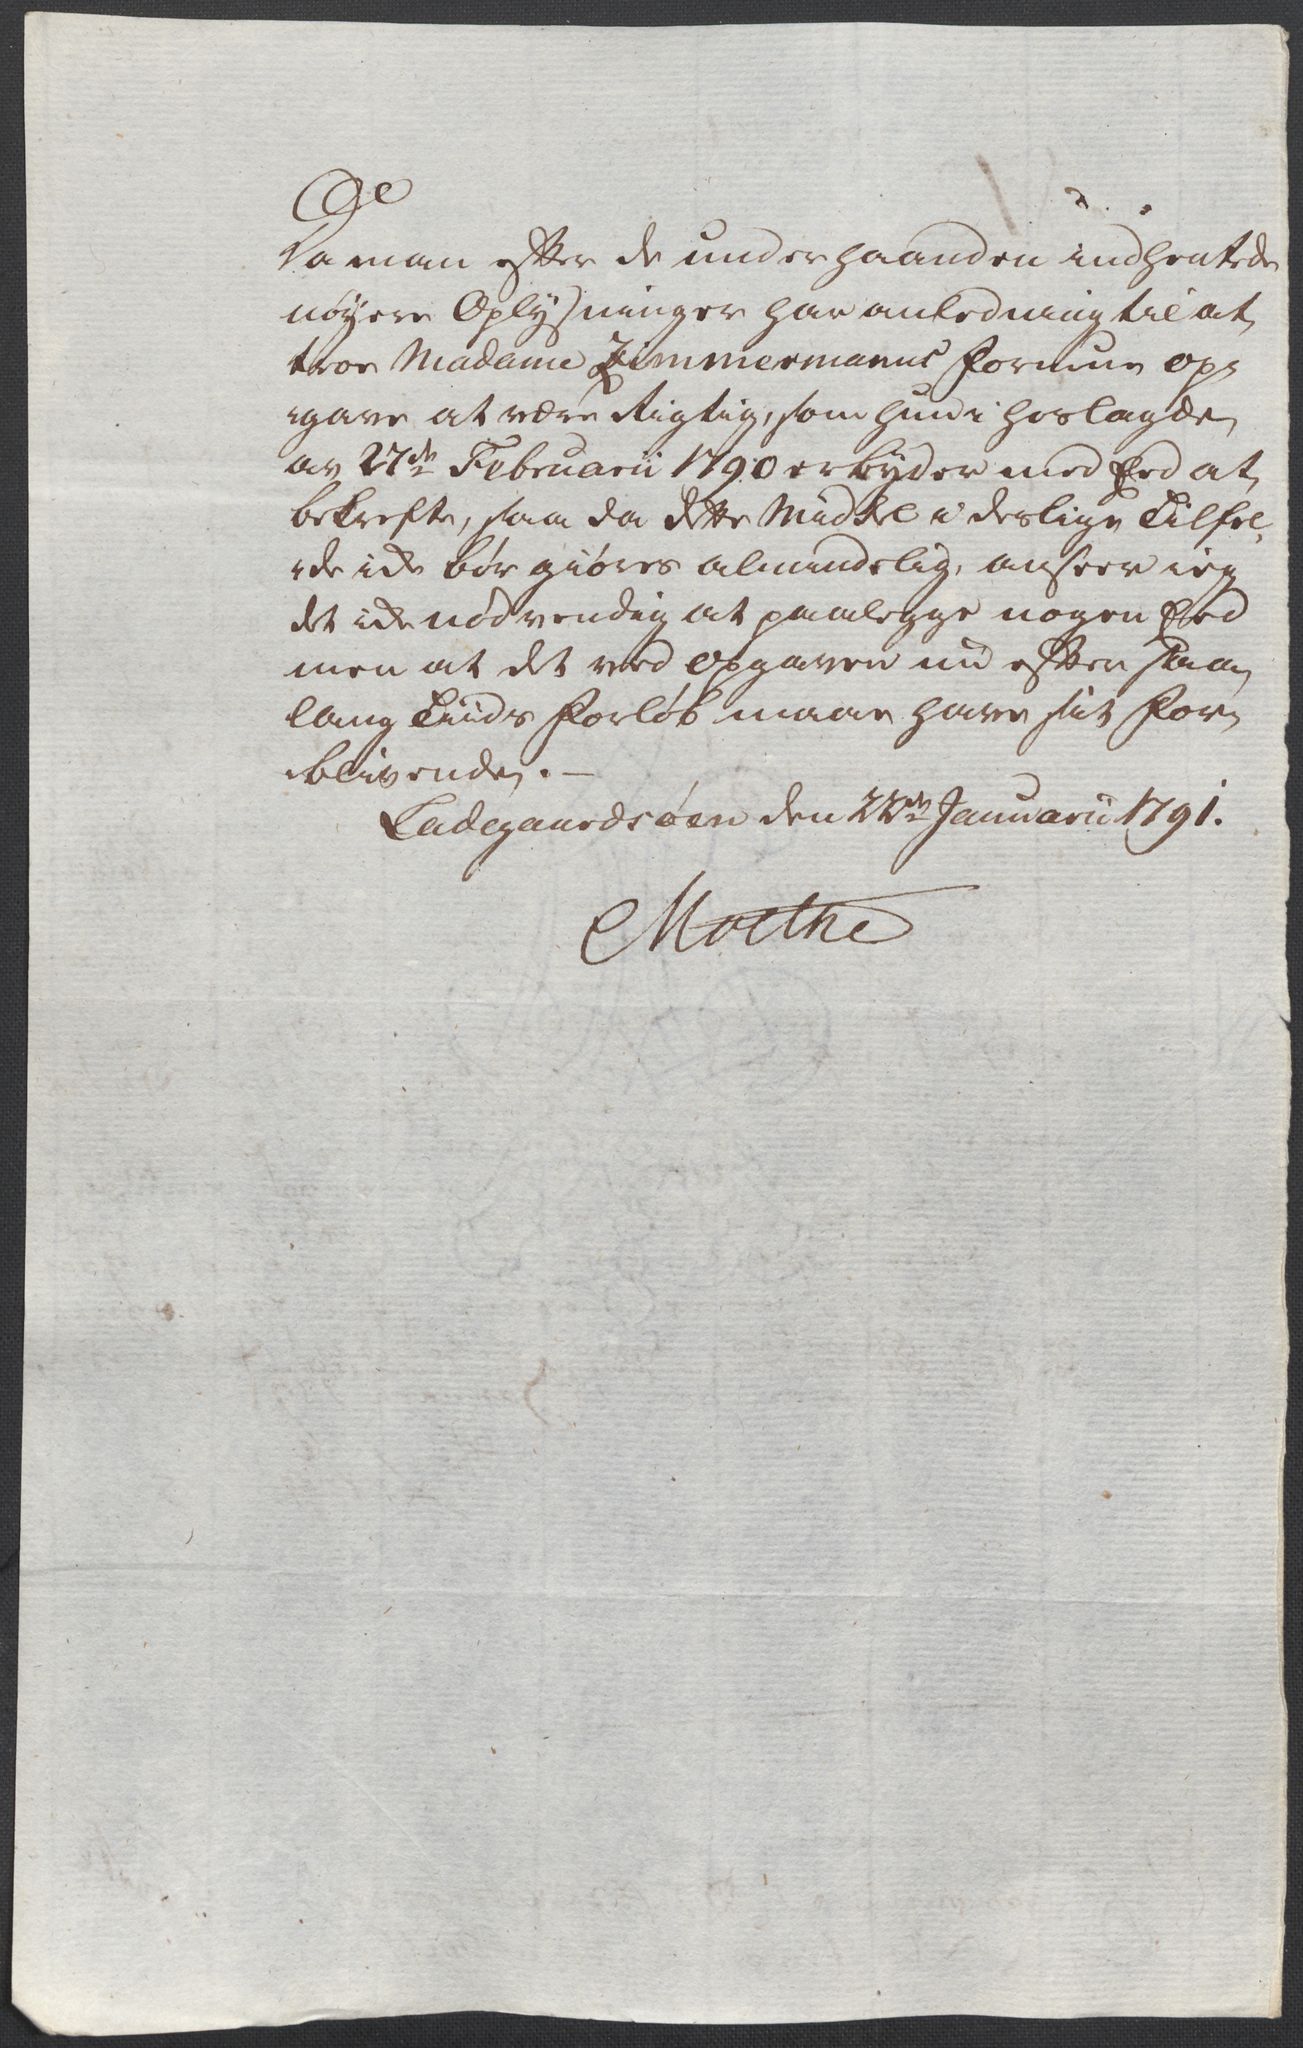 Da man efter de underhaanden indhentede
nöyere Oplysninger har anledning til at
troe Madame Zimmermanns Formue op-
gave at være Rigtig, som hun i hoslagde
av 27de Februarii 1790 erbyder med Eed at
bekrefte, saa da dette Middel i deslige Tilfel-
de ikke bör giöres almindelig, anseer ieg
det ikke nödvendig at paalegge nogen Eed
men at det ved Opgaven nu efter saa
lang Tiids Forlöb maae have sit For-
blivende. —
Ladegaardsöen den 22de Januarii 1791.
Moltke